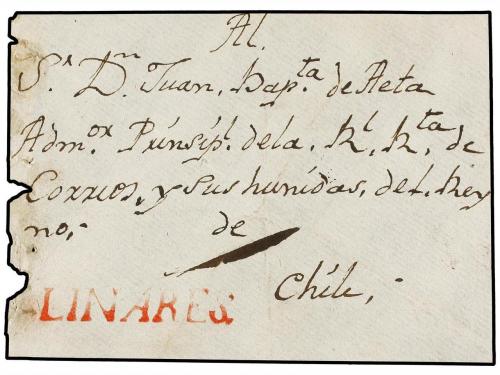 Al.
S.r D.n Juan, Bap.ta de Aeta
Adm.or Prinsip.l dela. Rl. Rta de
Correos, y sus hunidas, del. Rey
no,- de
Chile,-
LINARES